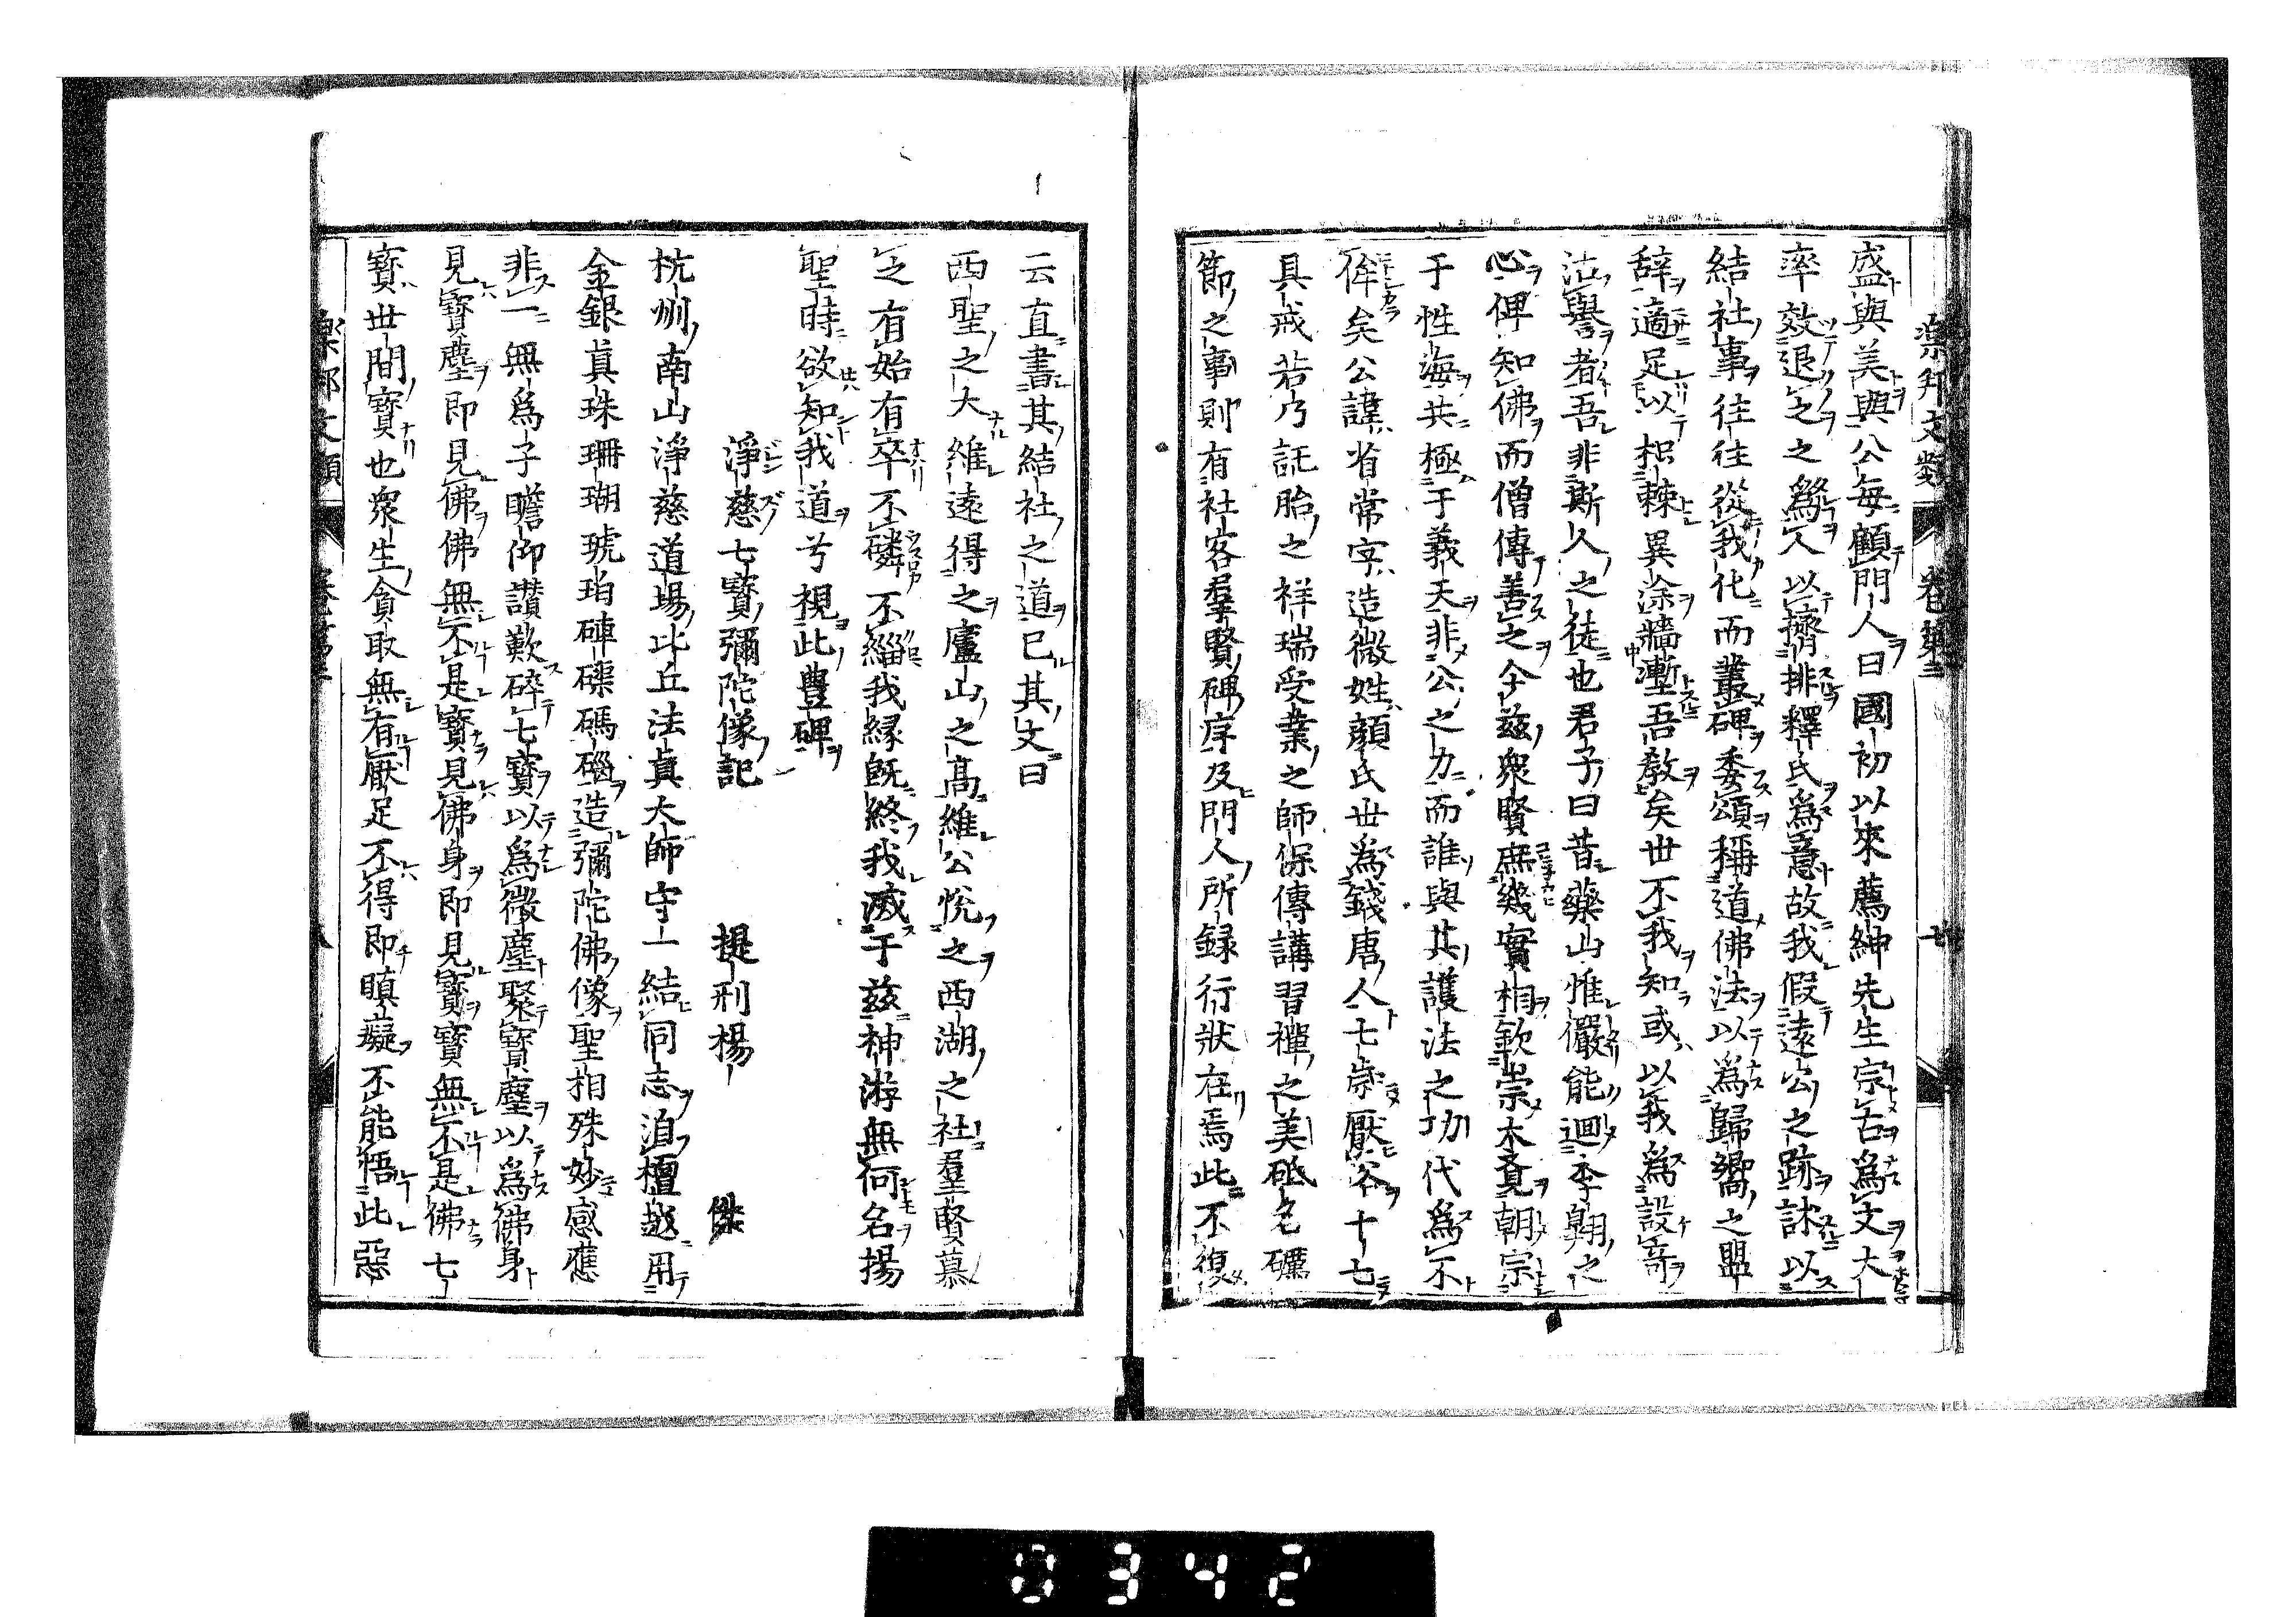 樂邦文類 卷第三 七
盛與美與公每顧門人曰國初以來薦紳先生宗古爲文大
率效退之之爲人以擠排釋氏爲意故我假遠公之跡訹以
結社事往往從我化而叢碑委頌稱道佛法以爲歸嚮之盟
辭適足以枳棘異涂牆塹吾教矣世不我知或以我爲設奇
沽譽者吾非斯人之徒也君子曰昔藥山惟儼能迴李翶之
心俾知佛而僧傳善之今茲衆賢庶幾實相欽崇本覔朝宗
于性海共極于義天非公之力而誰與其護法之功代爲不
侔矣公諱省常字造微姓顔氏世爲錢唐人七歳厭俗十七
具戒若乃託胎之祥瑞受業之師保傳講習禪之美砥名礪
節之事則有社客羣賢碑序及門人所録行狀在焉此不復
云直書其結社之道巳其文曰
西聖之大維遠得之廬山之高維公悅之西湖之社羣賢慕
之有始有卒不磷不緇我縁既終我滅于茲神游無何名揚
聖時欲知我道兮視此豐碑
淨慈七寶彌陀像記 提刑楊 傑
杭州南山淨慈道場比丘法眞大師守一結同志洎檀越用
金銀眞珠珊瑚琥珀硨磲碼碯造彌陀佛像聖相殊妙感應
非一無爲子瞻仰讃歎碎七寶以爲微塵聚寶塵以爲佛身
見寶塵即見佛佛無不是寶見佛身即見寶寶無不是佛七
寶世間寶也衆生貪取無有厭足不得即瞋癡不能悟此惡
樂邦文類 卷第三 八
0342